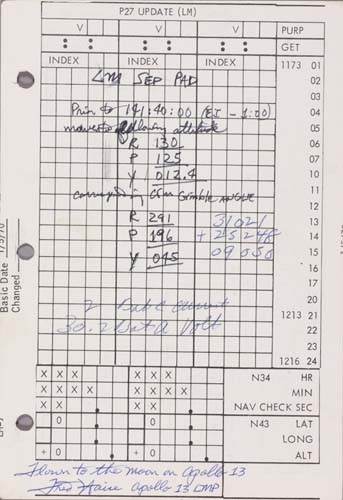 P27 UPDATE (LM)
V V V PURP
GET
INDEX INDEX INDEX 1173 01
LM SEP PAD 02
03
Prior to 141:40:00 (EI - 1:00) 04
maneuver to following attitude 05
R 130 06
P 125 07
Y 012.4 10
corresponding CSM Gimble ANGLE 11
12
R 291 31021 13
P 196 + 25248 14
Y 045 09050 15
16
17
20
2 Bat C current 1213 21
30.2 Bat A Volt 22
23
1216 24
X X X X X X N34 HR
X X X X X X X X MIN
X X X X NAV CHECK SEC
0 0 N43 LAT
LONG
+ 0 + 0 ALT
Basic Date
Changed
Flown to the moon on Apollo 13
Fred Haise Apollo 13 LMP